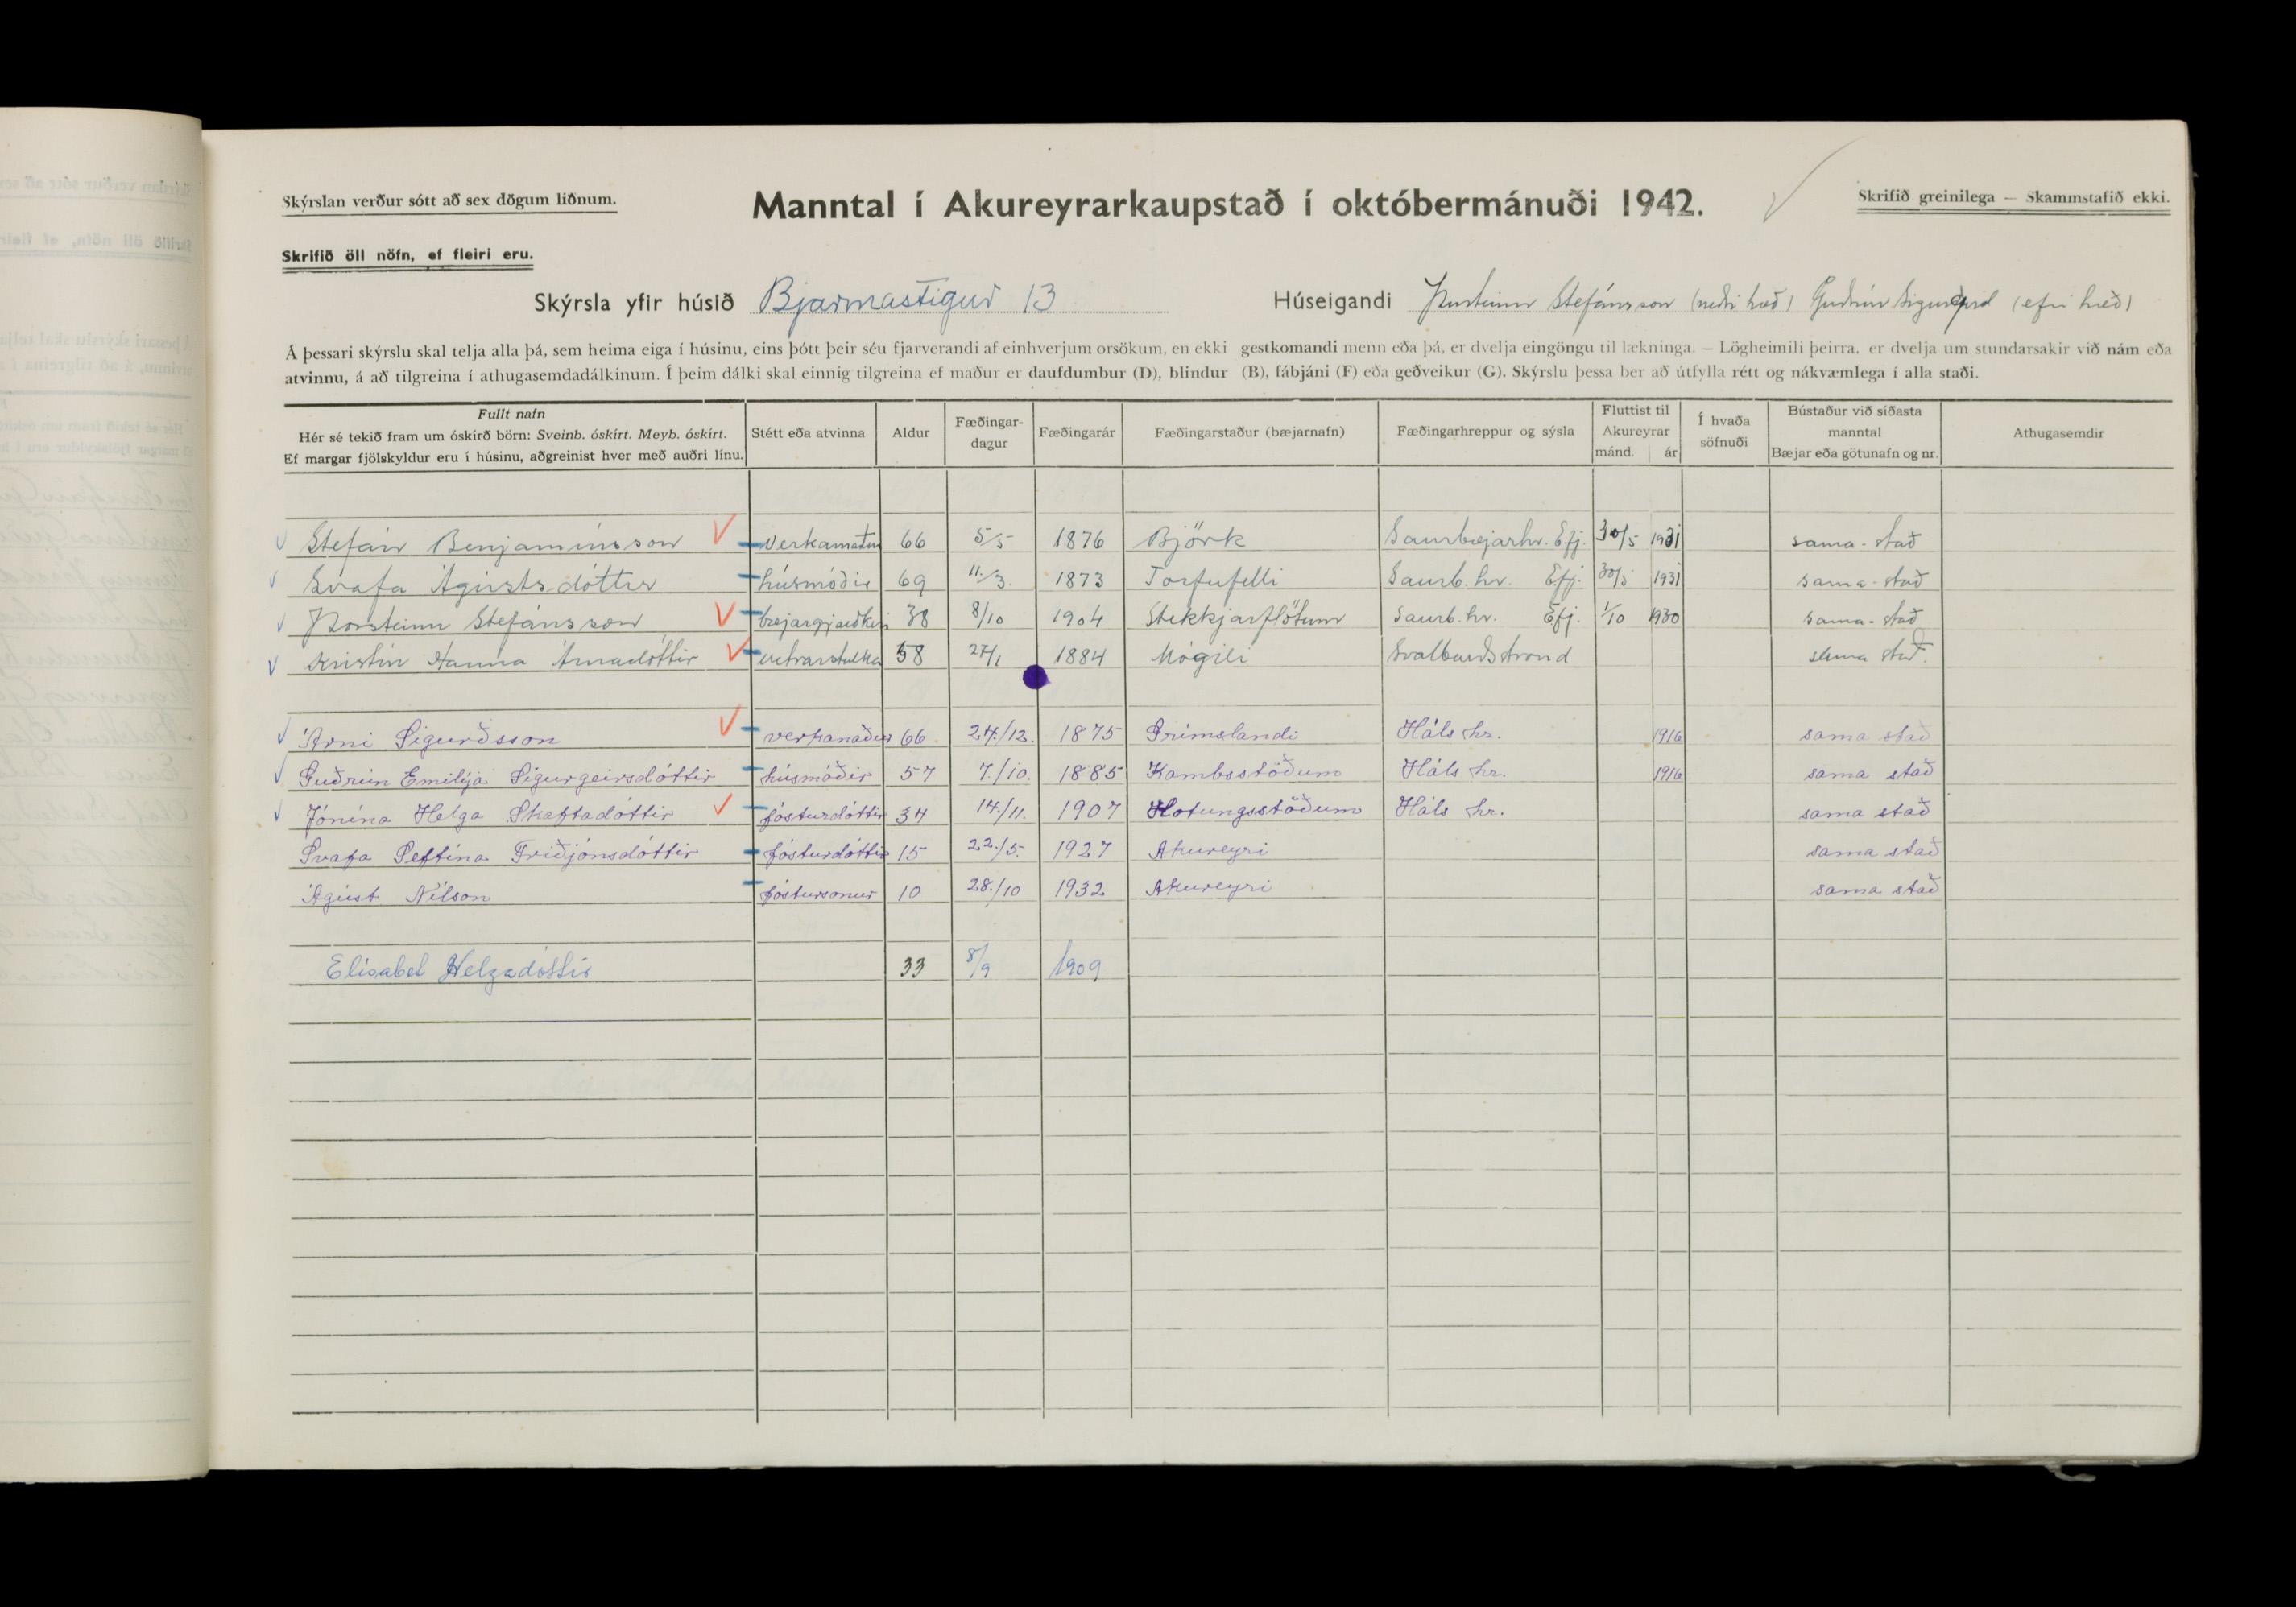 Skýrslan verður sótt að sex dögum liðnum.
Manntal í Akureyrarkaupstað í októbermánuði 1942.
Skrifið greinilega — Skammstafið ekki.
Skrifið öll nöfn, ef fleiri eru.
Skýrsla yfir húsið Bjarmastígur 13 Húseigandi Þorsteinn Stefánsson (neðri hæð) Guðrún (efri hæð)
Á þessari skýrslu skal telja alla þá, sem heima eiga í húsinu, eins þótt þeir séu fjarverandi af einhverjum orsökum, en ekki gestkomandi menn eða þá, er dvelja eingöngu til lækninga. — Lögheimili þeirra, er dvelja um stundarsakir við nám eða
atvinnu, á að tilgreina í athugasemdadálkinum. Í þeim dálki skal einnig tilgreina ef maður er daufdumbur (D), blindur (B), fábjáni (F) eða geðveikur (G). Skýrslu þessa ber að útfylla rétt og nákvæmlega í alla staði.
Fullt nafn
Hér sé tekið fram um óskírð börn: Sveinb. óskírt. Meyb. óskírt.
Ef margar fjölskyldur eru í húsinu, aðgreinist hver með auðri línu.
Stétt eða atvinna
Aldur
Fæðingar-
dagur
Fæðingarár
Fæðingarstaður (bæjarnafn)
Fæðingarhreppur og sýsla
Fluttist til
Akureyrar
mánd. ár
Í hvaða
söfnuði
Bústaður við síðasta
manntal
Bæjar eða götunafn og nr.
Athugasemdir
Stefán Benjamínsson verkamaður 66 5/5 1876 Björk Saurbæjarhr. Efj. 30/5 1931 sama - stað
Svafa Ágústsdóttir húsmóðir 69 11./3. 1873 Torfufelli Saurb. hr. Efj. 30/5 1931 sama - stað
Þorsteinn Stefánsson 38 8/10 1904 Stekkjarflötum Saurb. hr. Efj. 1/10 1930 sama - stað
Kristín Hanna Árnadóttir vetrarstulka 58 27/1 1884 Mógili Svalbarðsströnd sama stað.
Árni Sigurðsson verkamaður 66 24./12. 1875 Grímslandi Háls hr. 1916 sama stað
Guðrún Emilíja Sigurgeirsdóttir húsmóðir 57 7./10. 1885 Kambsstöðum Háls hr. 1916 sama stað
Jónína Helga Skaftadóttir fósturdóttir 34 14./11. 1907 Hotungsstöðum Háls hr. sama stað
Svafa Peffína Friðjónsdóttir fósturdóttir 15 22./5. 1927 Akureyri sama stað
Ágúst Nílson fóstursonur 10 28./10 1932 Akureyri sama stað
Elísabet Helgadóttir 33 8/9 1909